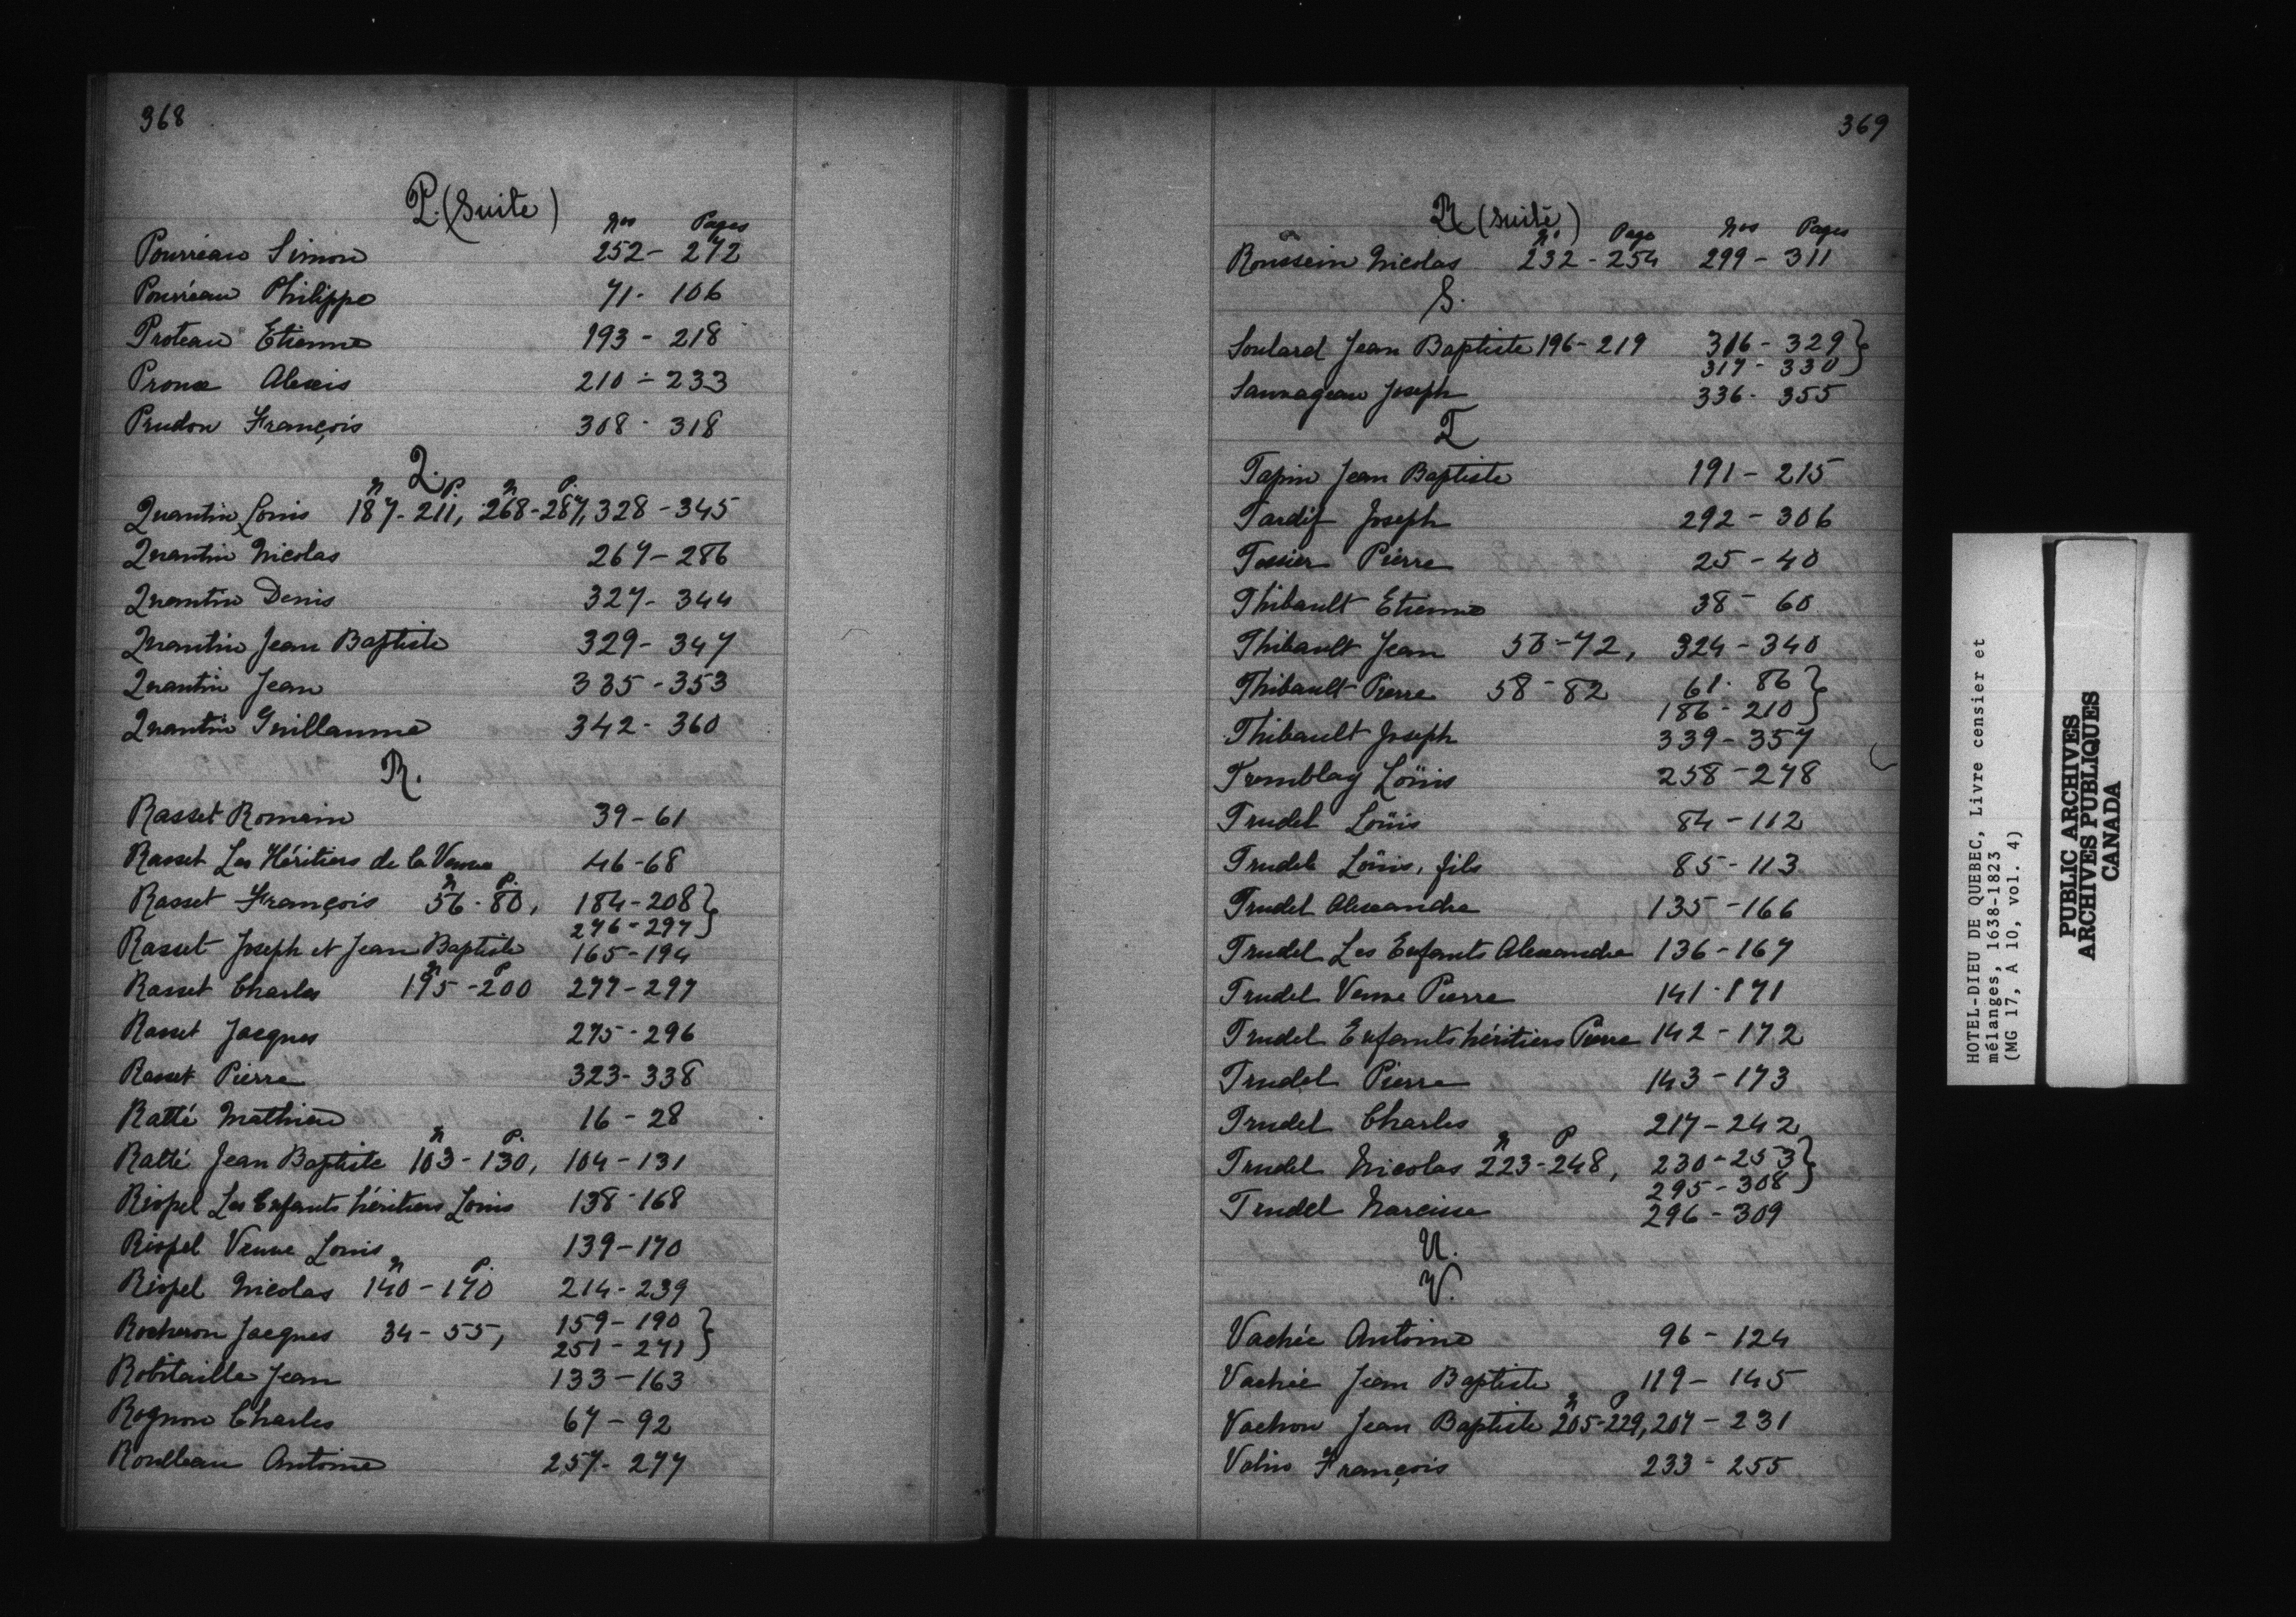 368
P. (Suite)
Nos Pages
Pourreau Simon 252 - 272
Pourreau Philippe 71 - 106
Proteau Etienne 193 - 218
Proux Alexis 210 - 233
Prudon François 308 - 318
Q.
N P. N P.
Quantin Louis 187 - 211, 268 - 287, 328 - 345
Quantin Nicolas 267 - 286
Quantin Denis 327 - 344
Quantin Jean Baptiste 329 - 347
Quantin Jean 335 - 353
Quantin Guillaume 342 - 360
R.
Rasset Romain 39 - 61
Rasset Les Héritiers de la Veuve 46 - 68
N P.
Rasset François 56 - 80, 184 - 208 }
276 - 297 }
Rasset Joseph et Jean Baptiste 165 - 194
N P
Rasset Charles 195 - 200 277 - 297
Rasset Jacques 275 - 296
Rasset Pierre 323 - 338
Ratté Mathieu 16 - 28
N P.
Ratté Jean Baptiste 103 - 130, 104 - 131
Riopel Les Enfants héritiers Louis 138 - 168
Riopel Veuve Louis 139 - 170
N P.
Riopel Nicolas 140 - 170 214 - 239
Rocheron Jacques 34 - 55, 159 - 190 }
251 - 271 }
Robitaille Jean 133 - 163
Rognon Charles 67 - 92
Roulleau Antoine 257 - 277
369
R (suite)
No Page Nos Pages
Roussein Nicolas 232 - 254 299 - 311
S.
Soulard Jean Baptiste 196 - 219 316 - 329 }
317 - 330 }
Sauvageau Joseph 336 - 355
T
Tapin Jean Baptiste 191 - 215
Tardif Joseph 292 - 306
Tessier Pierre 25 - 40
Thibault Etienne 38 - 60
Thibault Jean 50 - 72, 324 - 340
Thibault Pierre 58 - 82 61 - 86 }
186 - 210 }
Thibault Joseph 339 - 357
Tremblay Loüis 258 - 278
Trudel Loüis 84 - 112
Trudel Loüis, fils 85 - 113
Trudel Alexandre 135 - 166
Trudel Les Enfants Alexandre 136 - 167
Trudel Veuve Pierre 141 - 171
Trudel Enfants héritiers Pierre 142 - 172
Trudel Pierre 143 - 173
Trudel Charles 217 - 242
N P
Trudel Nicolas 223 - 248, 230 - 253 }
295 - 308 }
Trudel Narcisse 296 - 309
U.
V.
Vachée Antoine 96 - 124
Vachée Jean Baptiste 119 - 145
N P
Vachon Jean Baptiste 205 - 229, 207 - 231
Valin François 233 - 255
HOTEL-DIEU DE QUEBEC, Livre censier et
mélanges, 1638-1823
(MG 17, A 10, vol. 4)
PUBLIC ARCHIVES
ARCHIVES PUBLIQUES
CANADA